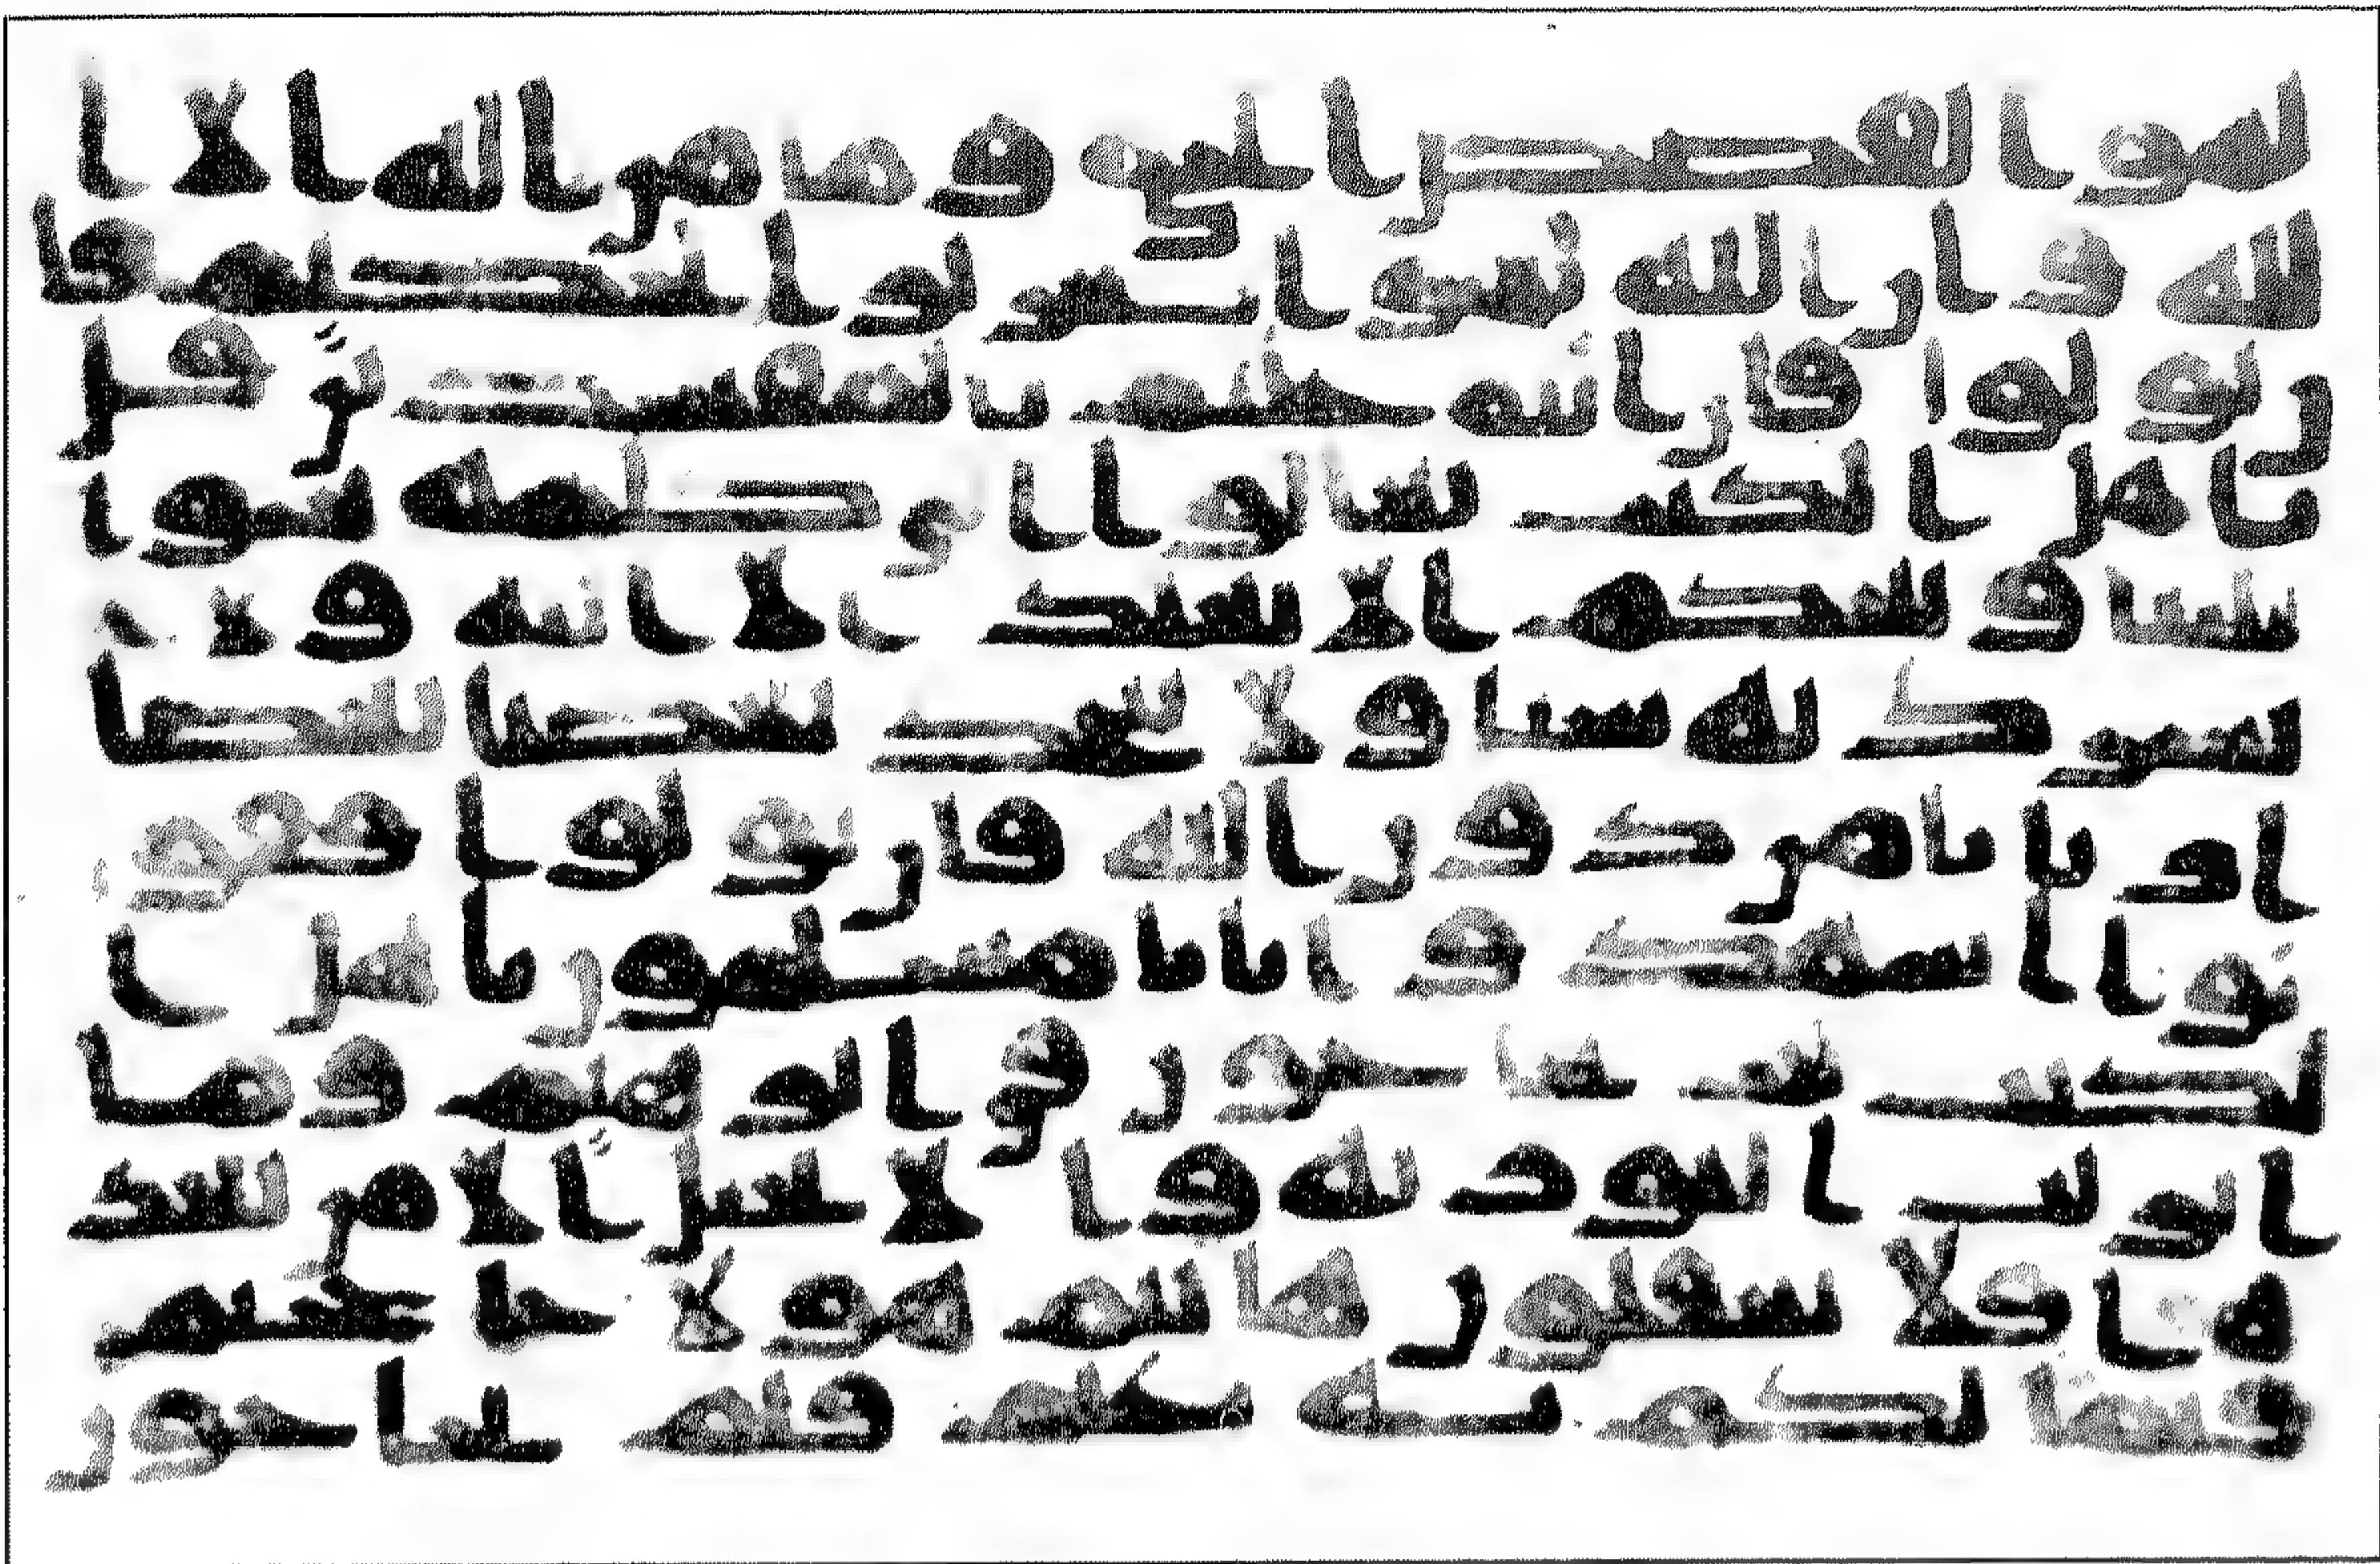 لهو القصص الحق وما من اله الا ا
لله وان الله لهو العزيز الحكيم فا
ن تولوا فان الله عليم بالمفسدين قل
ياهل الكتب تعالوا الى كلمه سوا
بيننا وبينكم الا نعبد الا الله ولا
نشرك به شيا ولا يتخذ بعضنا بعضا
اربابا من دون الله فان تولوا فقو
لوا اشهدوا بانا مسلمون ياهل ا
لكتب لم تحاجون في ابرهيم وما
انزلت التوريه والانجيل الا من بعد
ه افلا تعقلون هانتم هولا حججتم
فيما لكم به علم فلم تحاجون